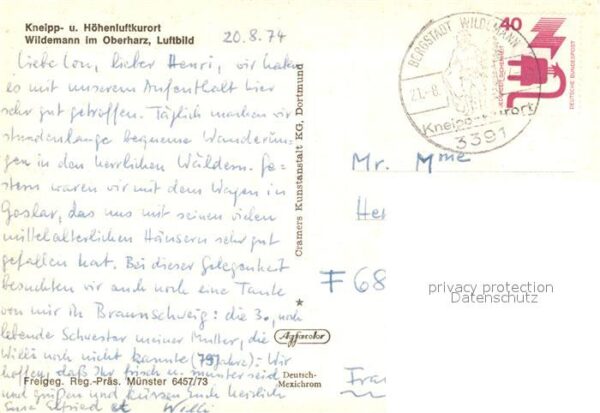 Kneipp- u. Höhenluftkurort
Wildemann im Oberharz, Luftbild
20.8.74
Liebe Lou, lieber Henri, wir haben
es mit unserem Aufenthalt hier
sehr gut getroffen. Täglich machen wir
stundenlange bequeme Wanderun-
gen in den herrlichen Wäldern. Ge-
stern waren wir mit dem Wagen in
Goslar, das uns mit seinen vielen
mittelalterlichen Häusern sehr gut
gefallen hat. Bei dieser Gelegenheit
besuchten wir auch noch eine Tante
von mir in Braunschweig: die 3., noch
lebende Schwester meiner Mutter, die
Willi noch nicht kannte (79 Jahre). Wir
hoffen, daß Ihr frisch u. munter seid
und grüßen und küssen Euch herzlich
Elfried et Willi
Freigeg. Reg.-Präs. Münster 6457/73
Cramers Kunstanstalt KG, Dortmund
Agfacolor
Deutsch-
Mexichrom
BERGSTADT WILDEMANN
21.-8.
Kneippkurort
3391
40
JEDERZEIT SICHERHEIT
DEUTSCHE BUNDESPOST
Mr. Mme
He
F 68
privacy protection
Datenschutz
Fra